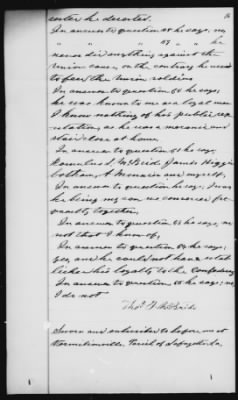 In answer to question 48 he says, no
" " " " 49 " " he
never did anything against the
Union cause, on the contrary he used
to feed the Union soldiers
In answer to question 50 he says,
he was known to me as a loyal man
I know nothing of his public rep
utation, as he was a
at home,
In answer to question 51 he says,
McBride James Higgin
botham, A and myself,
In answer to question he says,
he being my son we conversed fre
quently together,
In answer to question 53 he says, no
not that I know of,
In answer to question 54 he says;
yes, and he could not have estab
lished his loyalty to the Confederacy
In answer to question 55 he says; no
I do not
Thos. McBride
Sworn and subscribed to before me at
Vermilionville, Parish of Lafayette La.